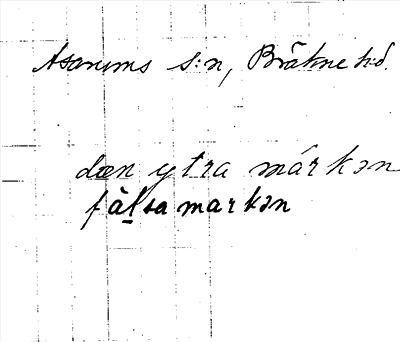 Asarums s:n, Bräkne h:d.
dæn ytra márkən
fàl̠sa markən